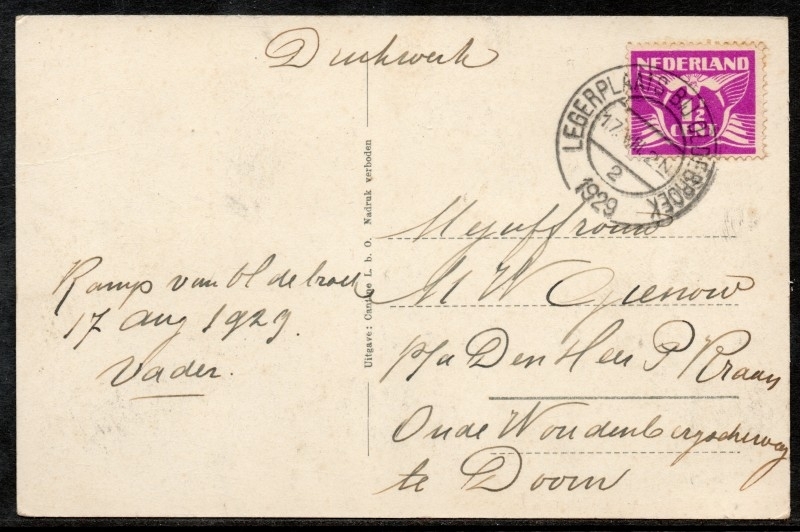 Drukwerk
NEDERLAND
1½
CENT
LEGERPLAATS B/ OLDEBROEK
17 VIII 2N
2
1929
Kamp van Oldebroek
17 aug 1929.
Vader.
Uitgave: Cantine L. b. O. Nadruk verboden
Mejuffrouw
M W
p/a Den Heer P Kraan
Oude Woudenbergscheweg
te Doorn